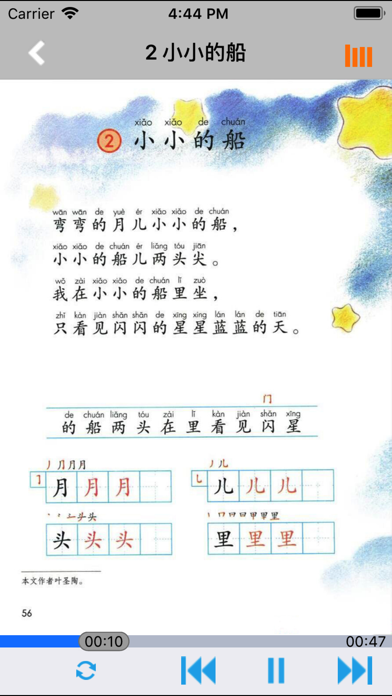 Carrier 4:44 PM
2 小小的船
xiǎo xiǎo de chuán
2 小小的船
wān wān de yuè ér xiǎo xiǎo de chuán
弯弯的月儿小小的船，
xiǎo xiǎo de chuán ér liǎng tóu jiān
小小的船儿两头尖。
wǒ zài xiǎo xiǎo de chuán lǐ zuò
我在小小的船里坐，
zhǐ kàn jiàn shǎn shǎn de xīng xing lán lán de tiān
只看见闪闪的星星蓝蓝的天。
门
de chuán liǎng tóu zài lǐ kàn jiàn shǎn xīng
的船两头在里看见闪星
丿 ⺆ 月 月
月 月 月
丿 儿
儿 儿 儿
头 头
头 头 头
丨 口 曰 曰 甲 甲 里
里 里 里
本文作者叶圣陶。
56
00:10 00:47